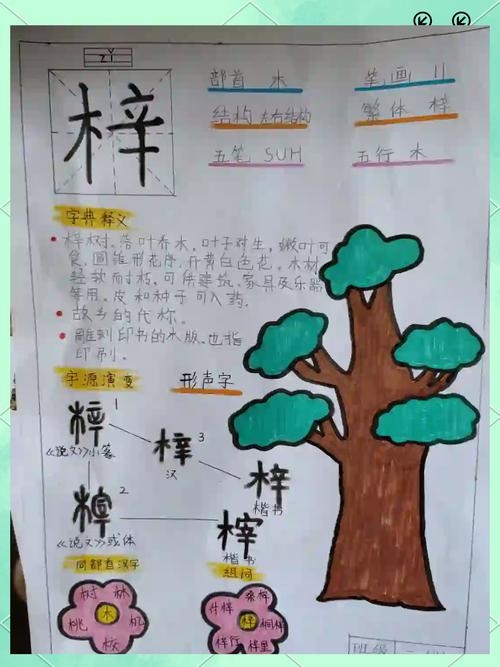 zǐ
梓
部首 木
笔画 11
结构 左右结构
繁体 梓
五笔 SUH
五行 木
字典释义
梓树。落叶乔木，叶子对生，嫩叶可
食，圆锥形花序，开黄白色花。木材
轻软耐朽，可供建筑、家具及乐器
等用。皮和种子可入药。
故乡的代称。
雕刻印书的木版，也指
印刷。
字源演变
形声字
梓 1
《说文》小篆
梓 3
汉
2
《说文》或体
梓
楷书
楷书
同部首汉字
组词
树 林
木
桃 机
桑梓
什梓 梓 桐梓
梓行 梓里
班级